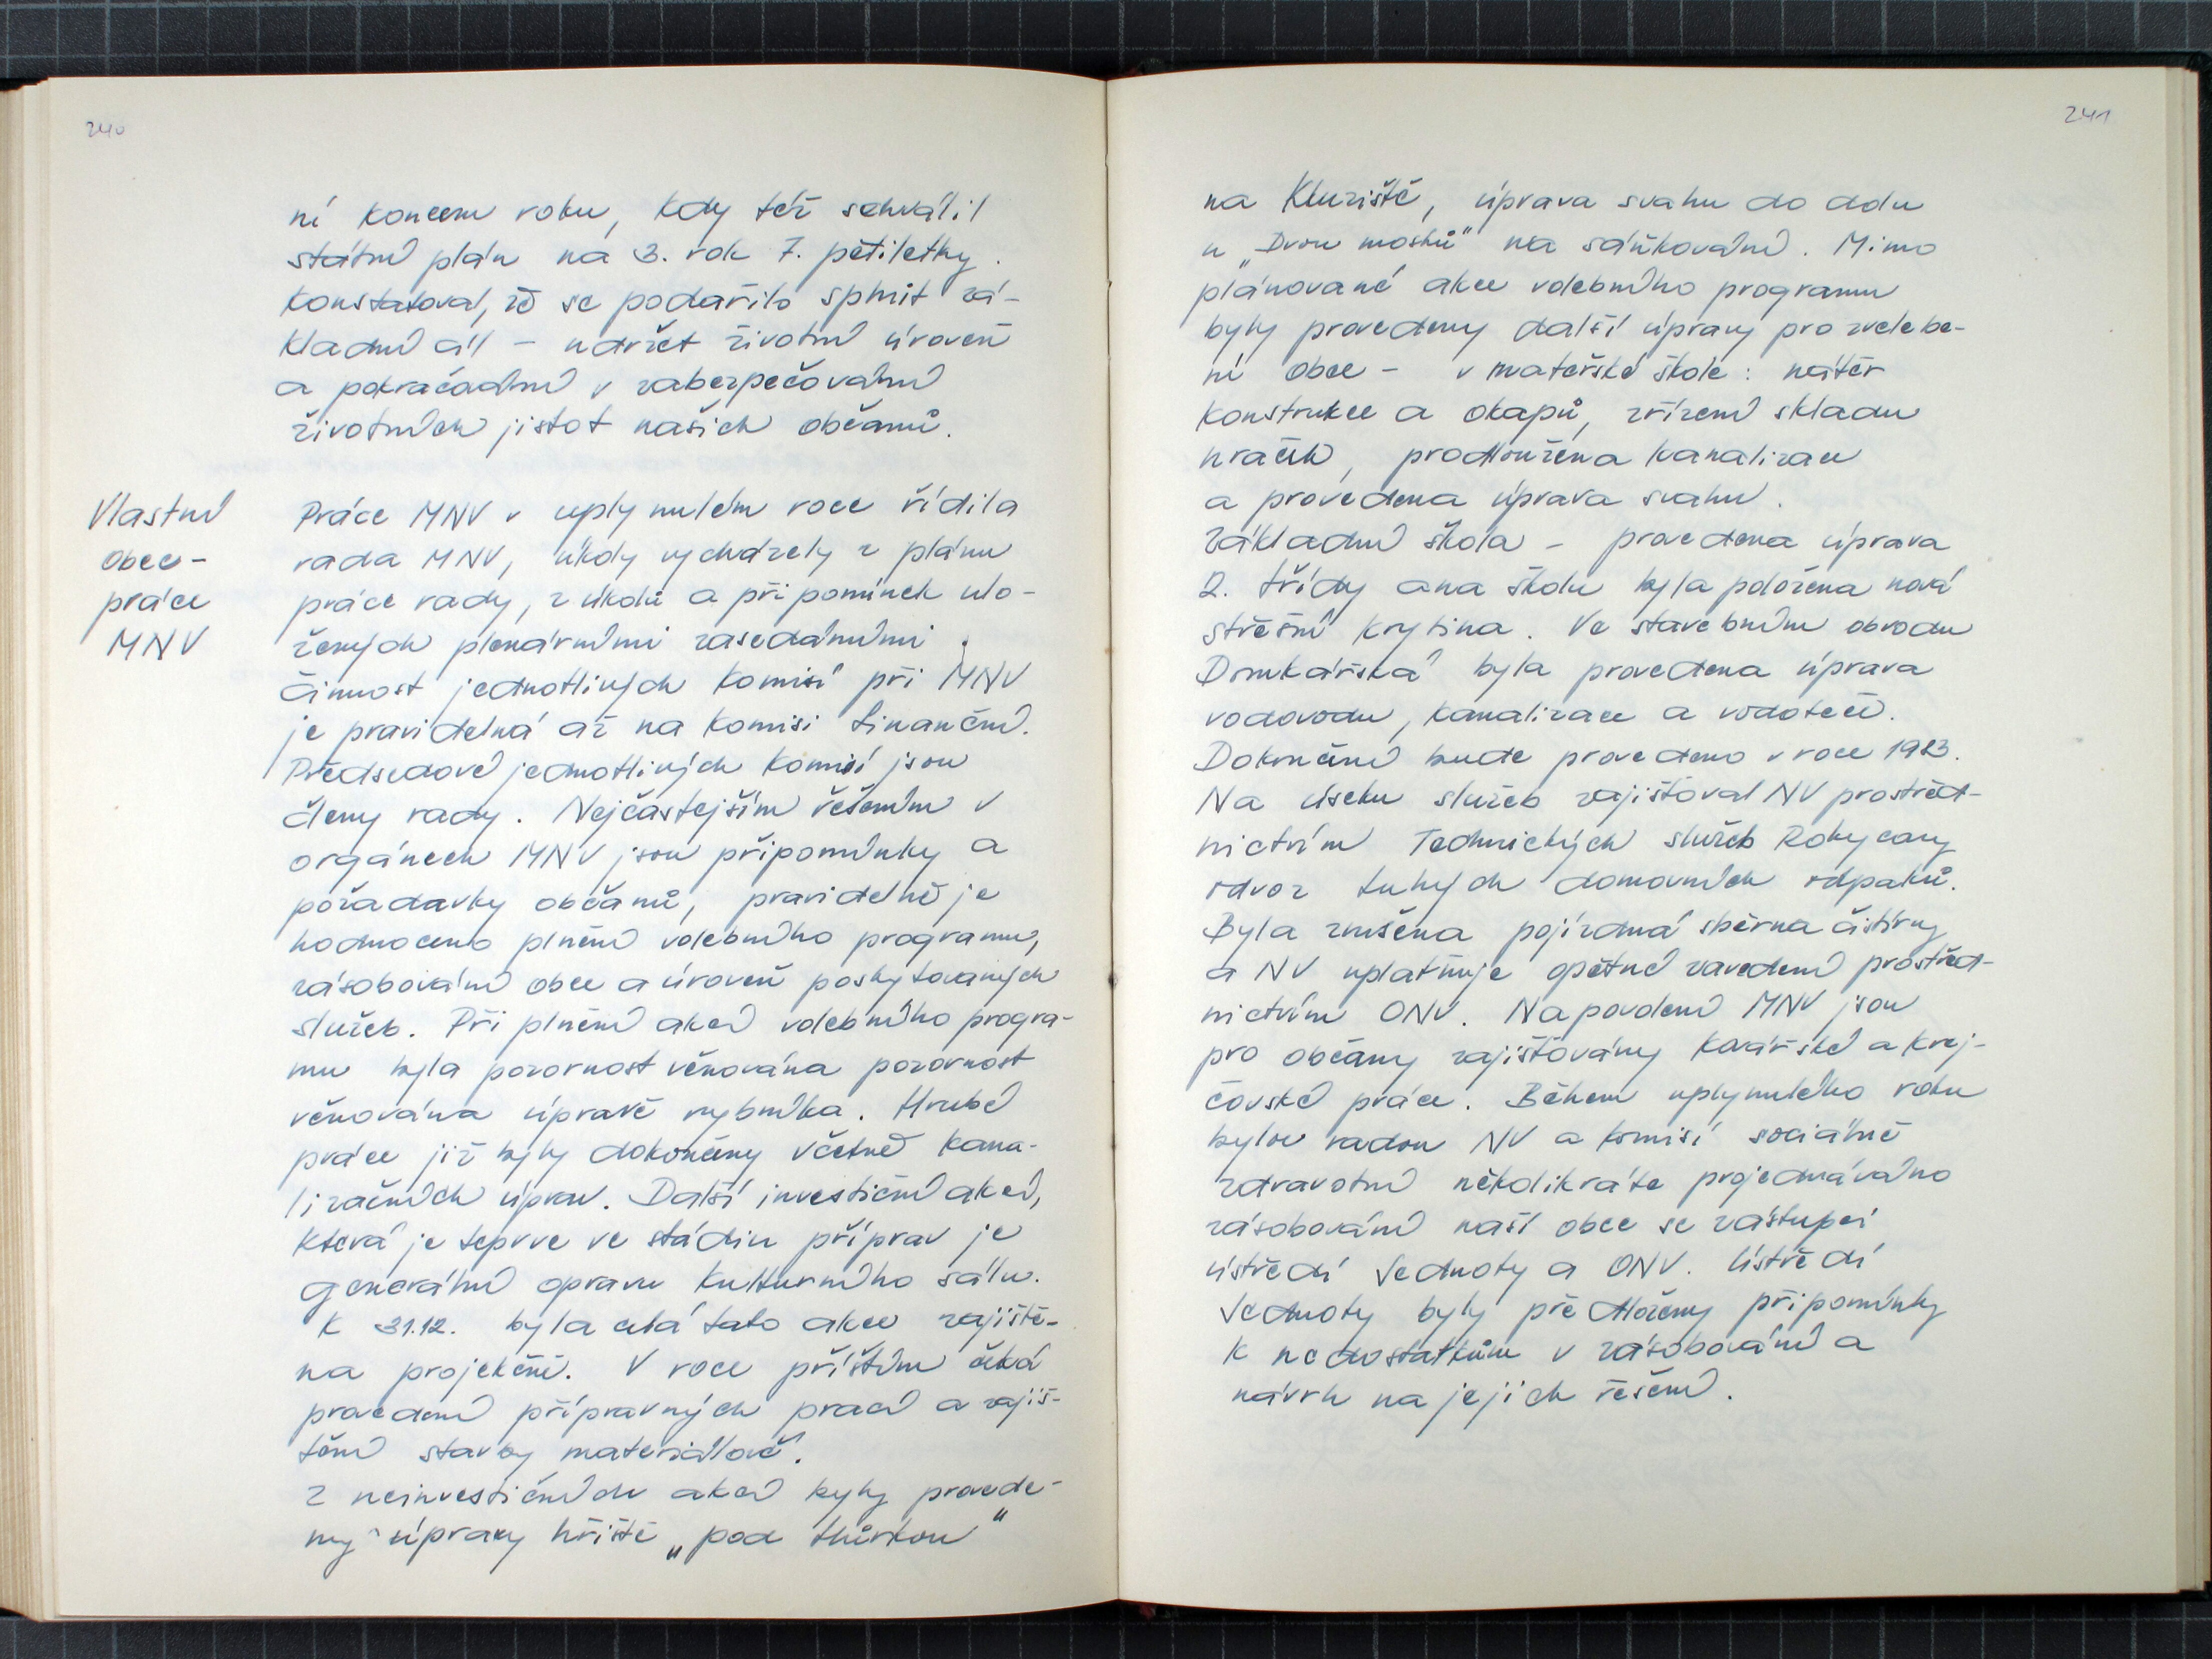 240
ní koncem roku, kdy též schválil
státní plán na 3. rok 7. pětiletky.
Konstatoval, že se podařilo splnit zá-
kladní cíl – udržet životní úroveň
a pokračování v zabezpečování
životních jistot našich občanů.
Vlastní
obec -
práce
MNV
Práce MNV v uplynulém roce řídila
rada MNV, úkoly vycházely z plánu
práce rady, z úkolů a připomínek ulo-
žených plenárními zasedáními.
Činnost jednotlivých komisí při MNV
je pravidelná až na komisi finanční.
Předsedové jednotlivých komisí jsou
členy rady. Nejčastejším řešením v
orgánech MNV jsou připomínky a
požadavky občanů, pravidelně je
hodnoceno plnění volebního programu,
zásobování obce a úroveň poskytovaných
služeb. Při plnění akcí volebního progra-
mu byla pozornost věnována pozornost
věnována úpravě rybníka. Hrubé
práce již byly dokončeny včetně kana-
lizačních úprav. Další investiční akcí,
která je teprve ve stádiu příprav je
generální opravu kulturního sálu.
K 31.12. byla celá tato akce zajiště-
na projekčně. V roce příštím čeká
provedení přípravných prací a zajiš-
tění stavby materiálově.
Z neinvestičních akcí byly provede-
ny úpravy hřiště „pod
241
na Kluziště, úprava svahu do dolu
u „Dvou mostků" na sáňkování. Mimo
plánované akce volebního programu
byly provedeny další úpravy pro zvelebe-
ní obce - v mateřské škole: nátěr
konstrukce a okapů, zřízení skladu
hraček, prodloužena kanalizace
a provedena úprava svahu.
Základní škola – provedena úprava
2. třídy a na školu byla položena nová
střešní krytina. Ve stavebním obvodu
Drnkářská byla provedena úprava
vodovodu, kanalizace a vodoteče.
Dokončení bude provedeno v roce 1983.
Na úseku služeb zajišťoval NV prostřed-
nictvím Technických služeb Rokycany
odvoz tuhých domovních odpadků.
Byla zrušena pojízdná sběrna čistírny
a NV uplatňuje opětné zavedení prostřed-
nictvím ONV. Na povolení MNV jsou
pro občany zajišťovány kovářské a krej-
čovské práce. Během uplynulého roku
bylo radou NV a komisí sociálně
zdravotní několikráte projednáváno
zásobování naší obce se zástupci
ústředí Jednoty a ONV. Ústředí
Jednoty byly předloženy připomínky
k nedostatkům v zásobování a
návrh na jejich řešení.